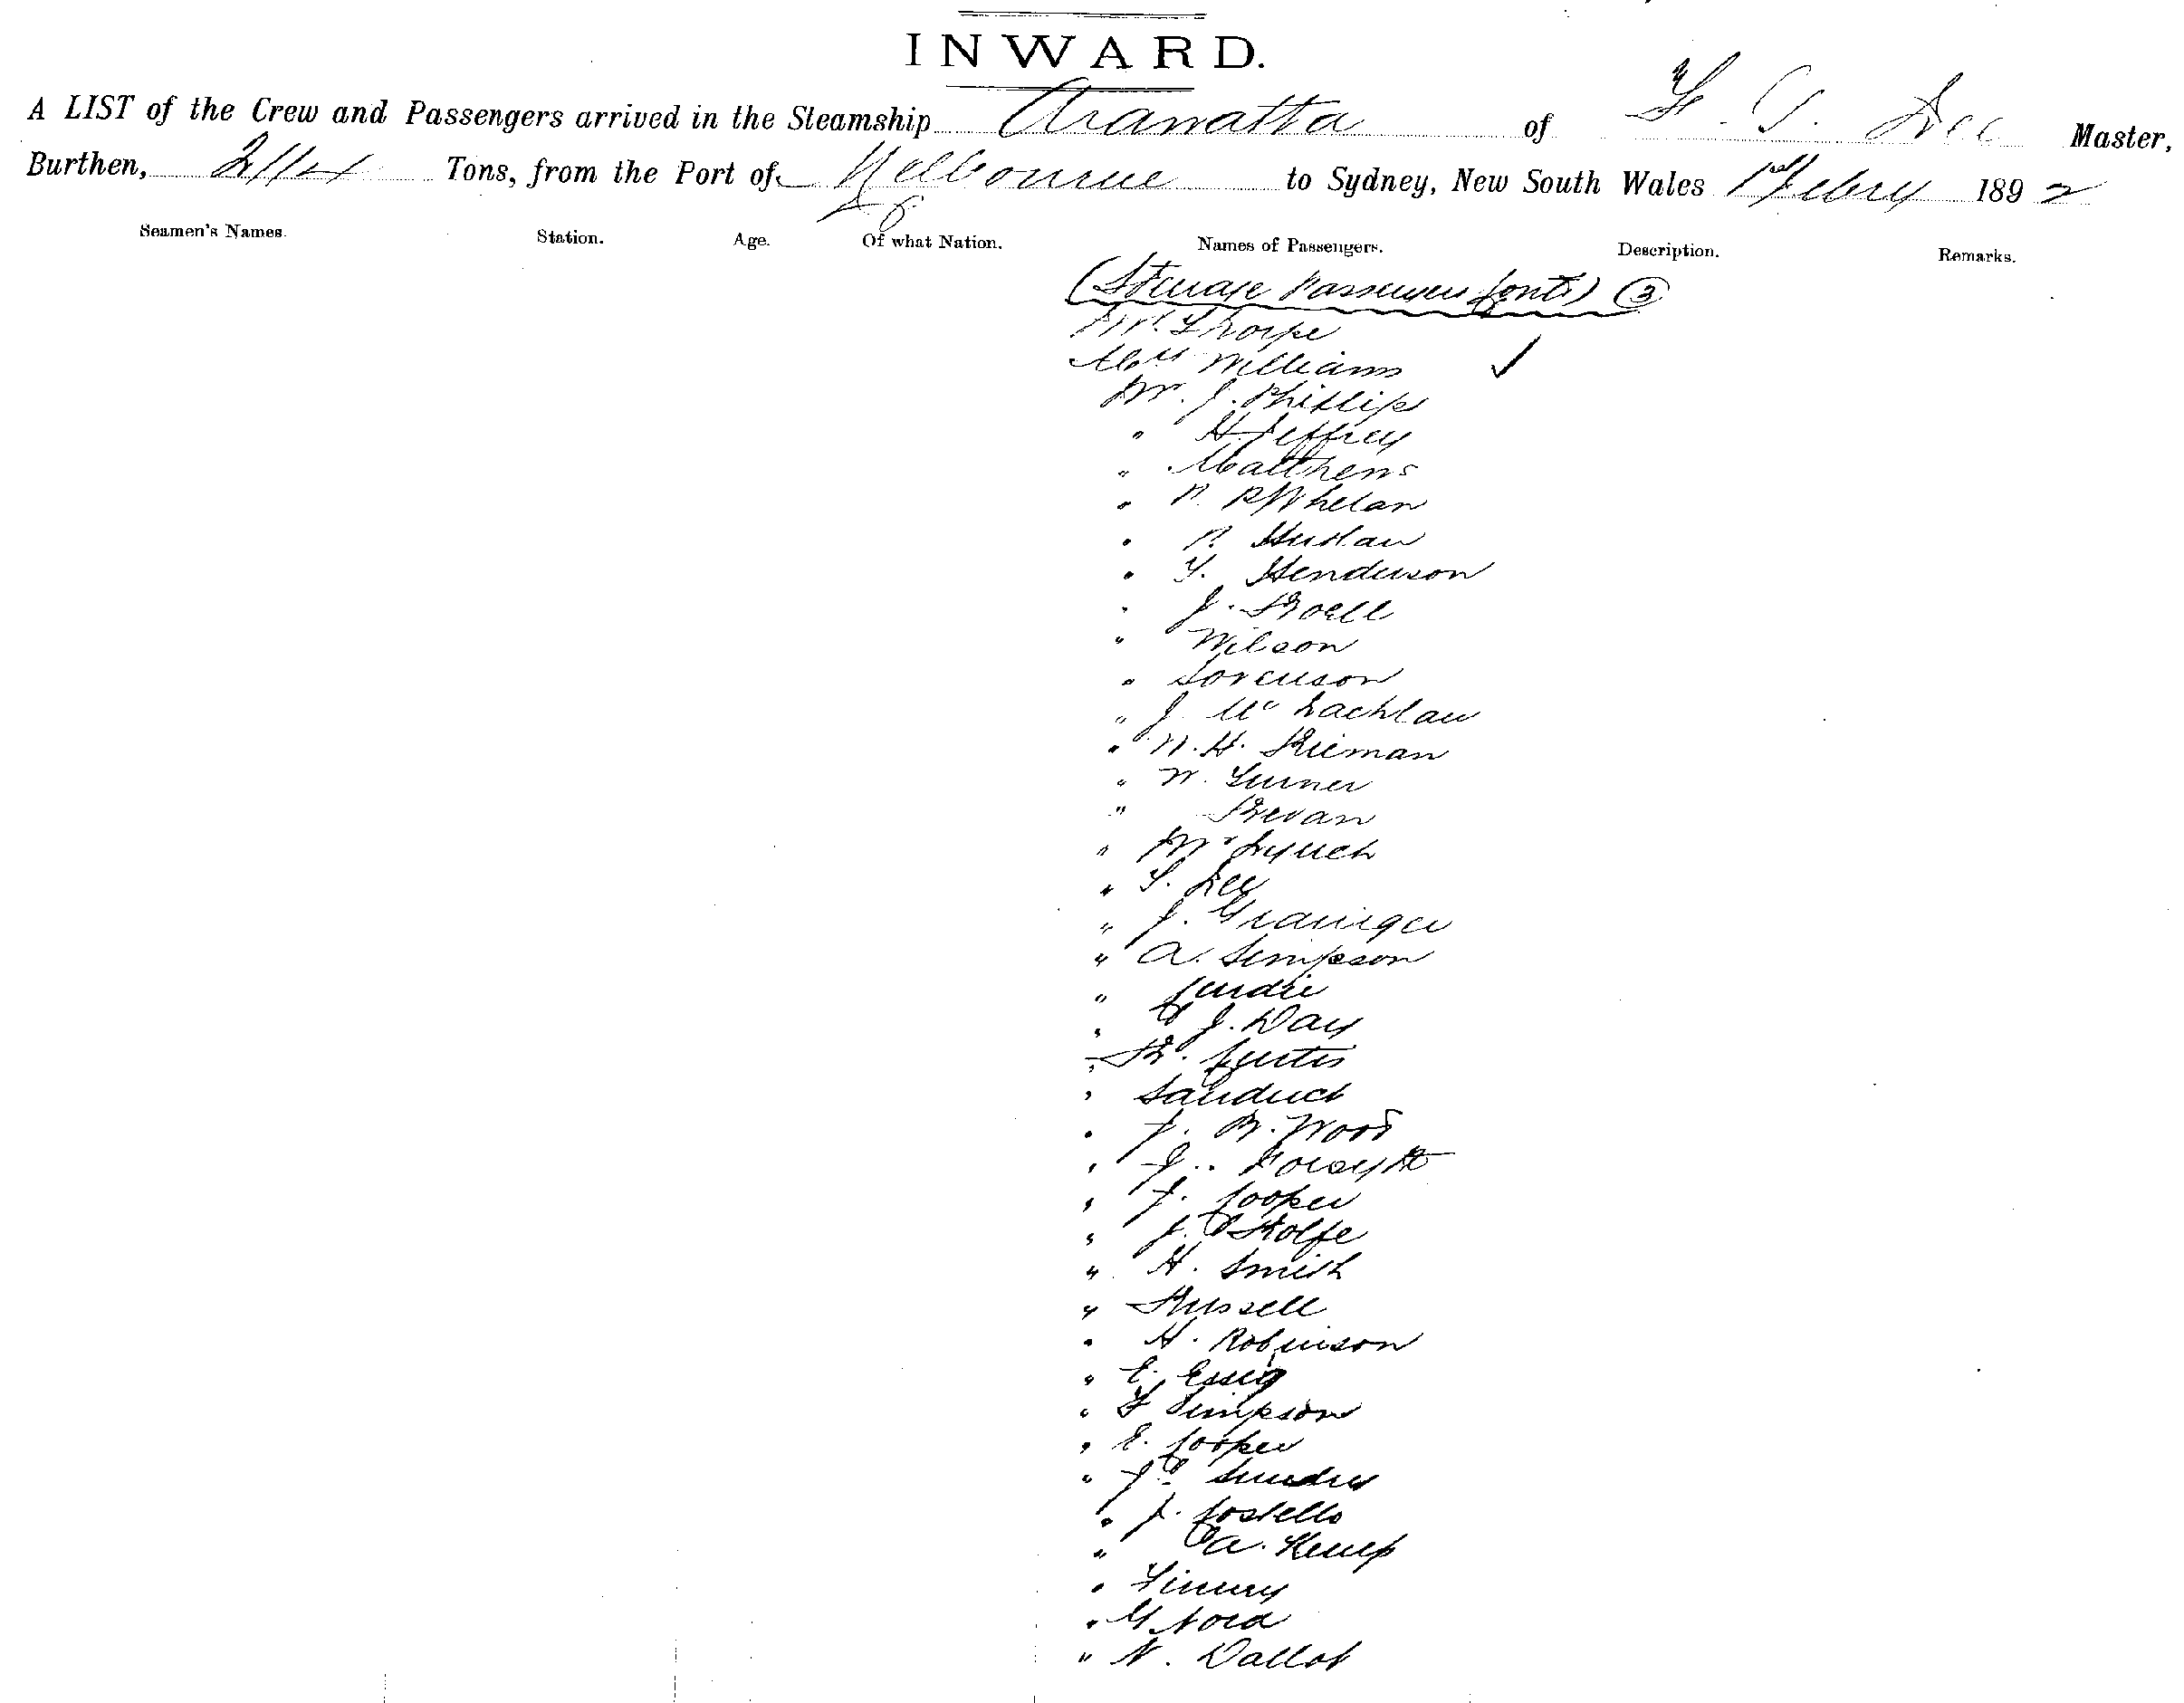 INWARD.
A LIST of the Crew and Passengers arrived in the Steamship Arawatta of F. G. Lee Master,
Burthen, 2114 Tons, from the Port of Melbourne to Sydney, New South Wales 1st Febry 1892
Seamen's Names. Station. Age. Of what Nation. Names of Passengers. Description. Remarks.
(Steerage Passengers Contd) 3
Mr. Thorpe
Williams ✓
Mr. J. Phillips
" H. Jeffrey
" Matthews
" P. R Whelan
" P.
" T. Henderson
" J.
" Wilson
" Sorenson
" J. Mc Lachlan
" W. H. Rieman
" W. Turner
" Bevan
" Lynch
" S. Lee
" J. Grainger
" A. Simpson
" Curdie
" J. Day
" R. Curtis
"
" J. B. Wood
" J. Forsyth
" J. Cooper
" J. Rolfe
" H. Smith
" Russell
" H. Robinson
" E. Essig
" F Simpson
" E. Cooper
" J.
" J. Costello
" A. Kemp
"
" G
" N.